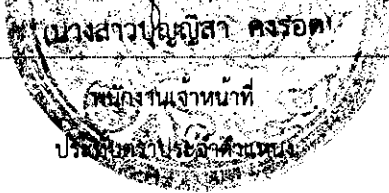 (นางสาวปุญญิสา คงรอด)
พนักงานเจ้าหน้าที่
ประทับตราประจำตำแหน่ง